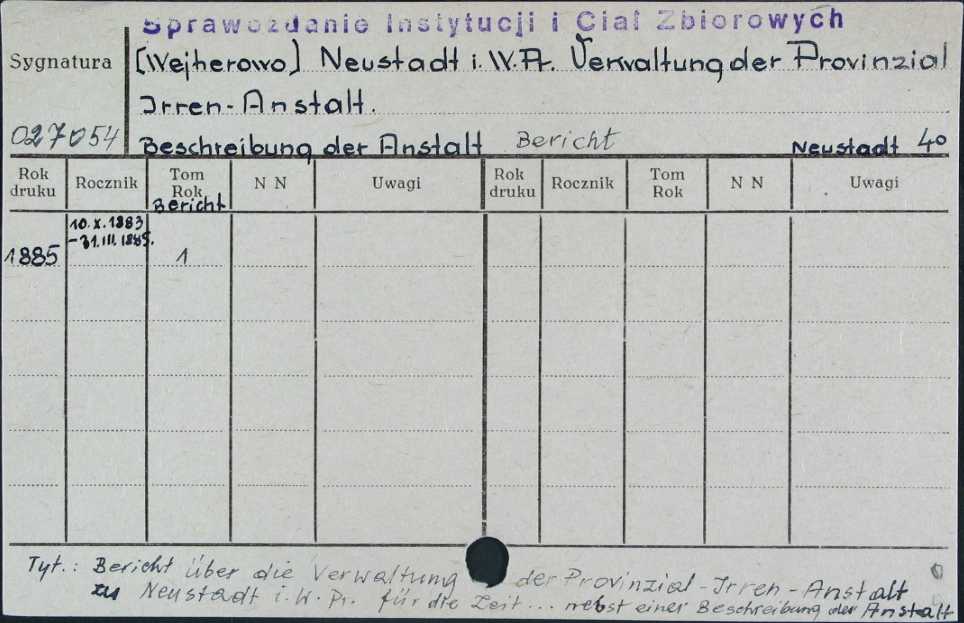 Sprawozdanie Instytucji i Ciał Zbiorowych
Sygnatura
[Wejherowo] Neustadt i. W. Pr. Verwaltung der Provinzial
Irren-Anstalt.
027054
Beschreibung der Anstalt Bericht Neustadt 4°
Rok druku Rocznik Tom Rok N N Uwagi Rok druku Rocznik Tom Rok N N Uwagi
Bericht
10.X.1883
-31.III.1885.
1885 1
Tyt.: Bericht über die Verwaltung der Provinzial-Irren-Anstalt
zu Neustadt i. W. Pr. für die Zeit... nebst einer Beschreibung der Anstalt